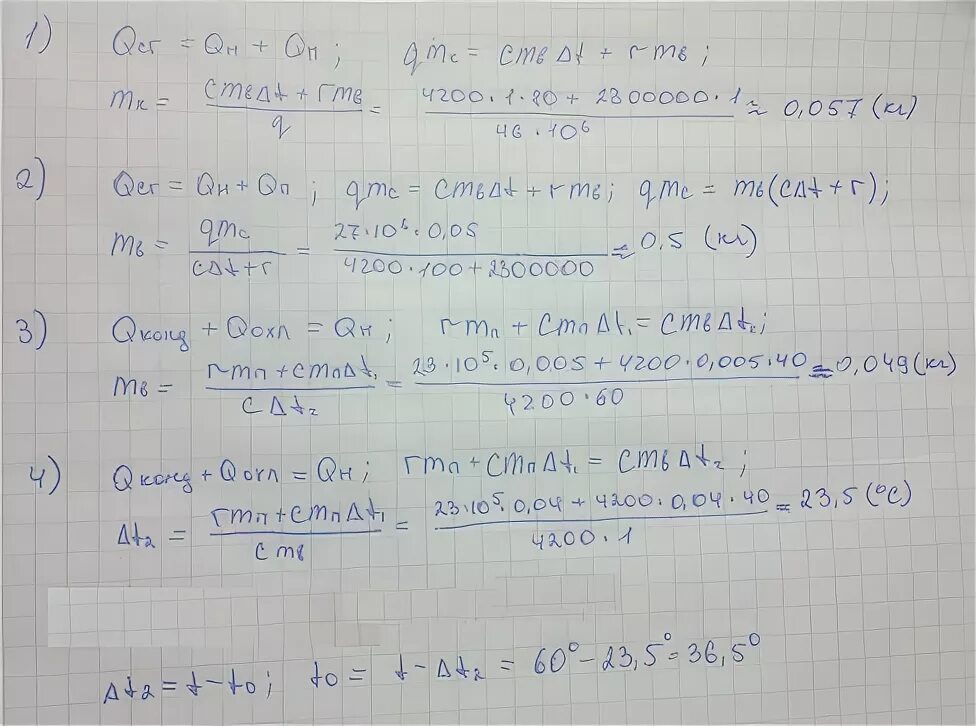 1) Qсг = Qн + Qн ; qmc = cmвΔt + rmв ;
mк = cmвΔt + rmв / q = 4200·1·80 + 2300000·1 / 46·10⁶ ≈ 0,057 (кг)
2) Qсг = Qн + Qп ; qmc = cmвΔt + rmв ; qmc = mв(cΔt + r) ;
mв = qmc / cΔt + r = 27·10⁶·0,05 / 4200·100 + 2300000 ≈ 0,5 (кг)
3) Qконд + Qохл = Qн ; rmп + cmпΔt₁ = cmвΔt₂ ;
mв = rmп + cmпΔt₁ / cΔt₂ = 23·10⁵·0,005 + 4200·0,005·40 / 4200·60 ≈ 0,049 (кг)
4) Qконд + Qохл = Qн ; rmп + cmпΔt₁ = cmвΔt₂ ;
Δt₂ = rmп + cmпΔt₁ / cmв = 23·10⁵·0,04 + 4200·0,04·40 / 4200·1 = 23,5 (°C)
Δt₂ = t – t₀ ; t₀ = t – Δt₂ = 60° – 23,5° = 36,5°